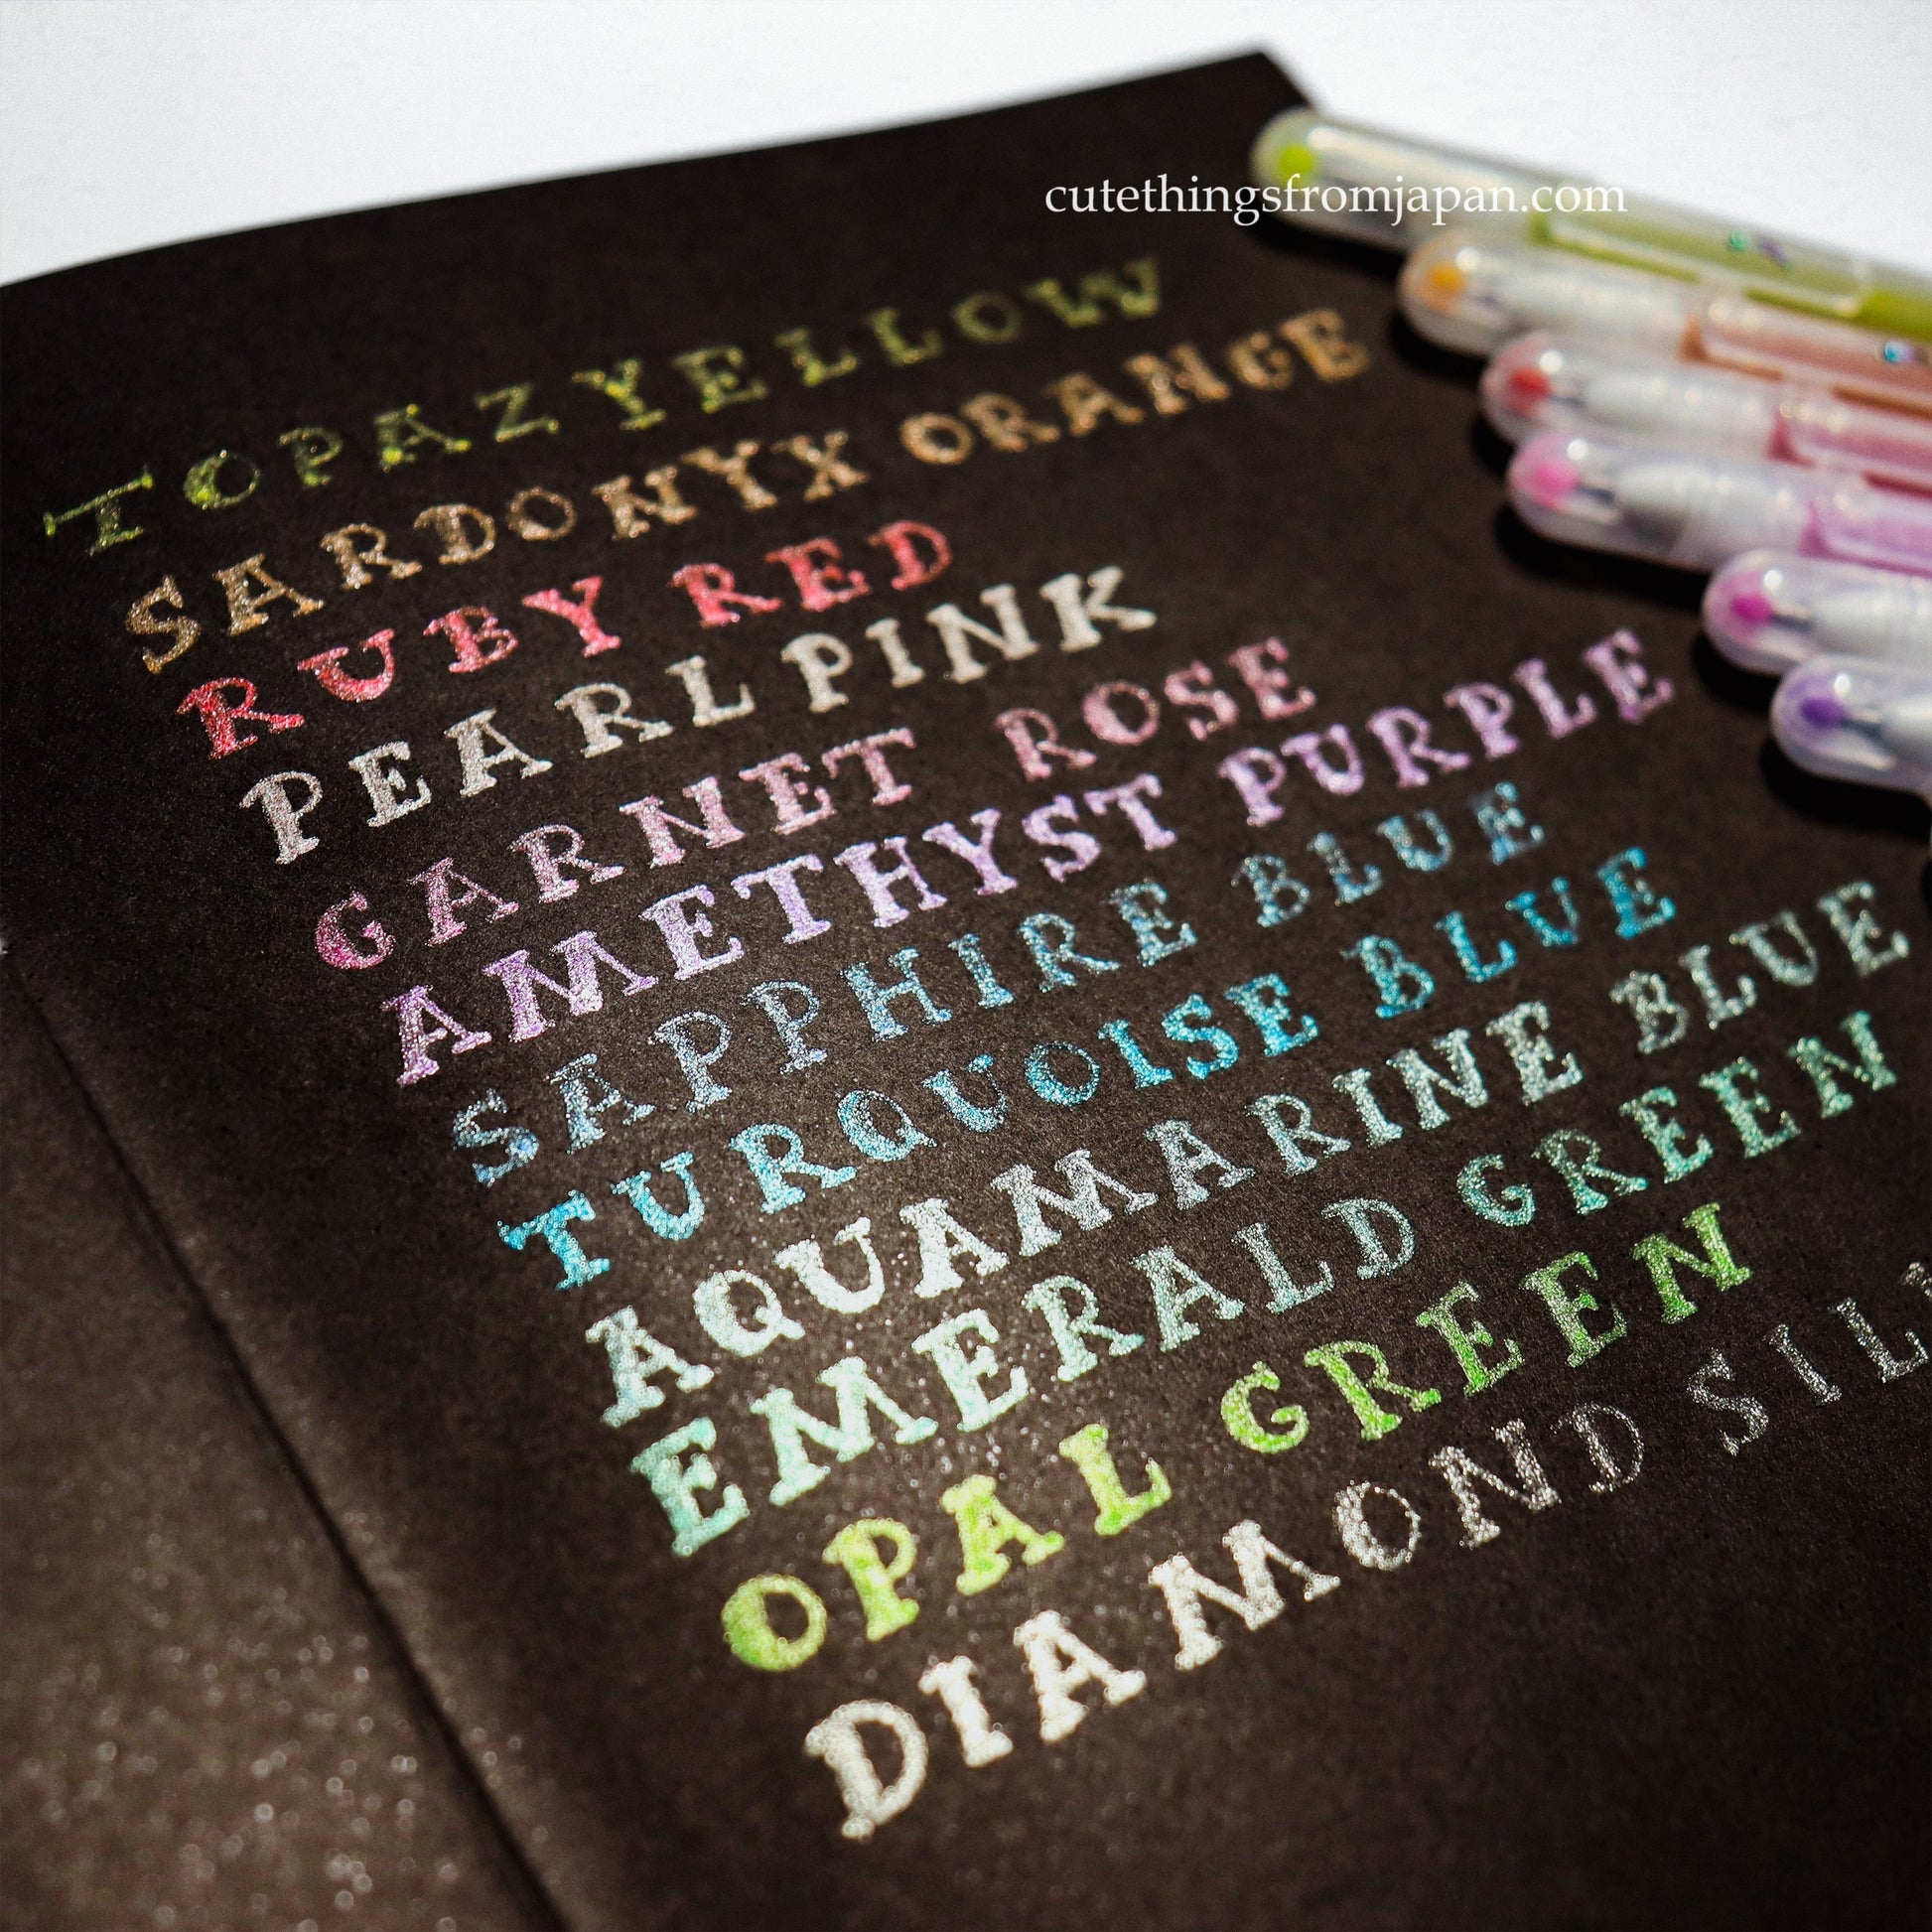 cutethingsfromjapan.com
TOPAZ YELLOW
SARDONYX ORANGE
RUBY RED
PEARL PINK
GARNET ROSE
AMETHYST PURPLE
SAPPHIRE BLUE
TURQUOISE BLUE
AQUAMARINE BLUE
EMERALD GREEN
OPAL GREEN
DIAMOND SIL